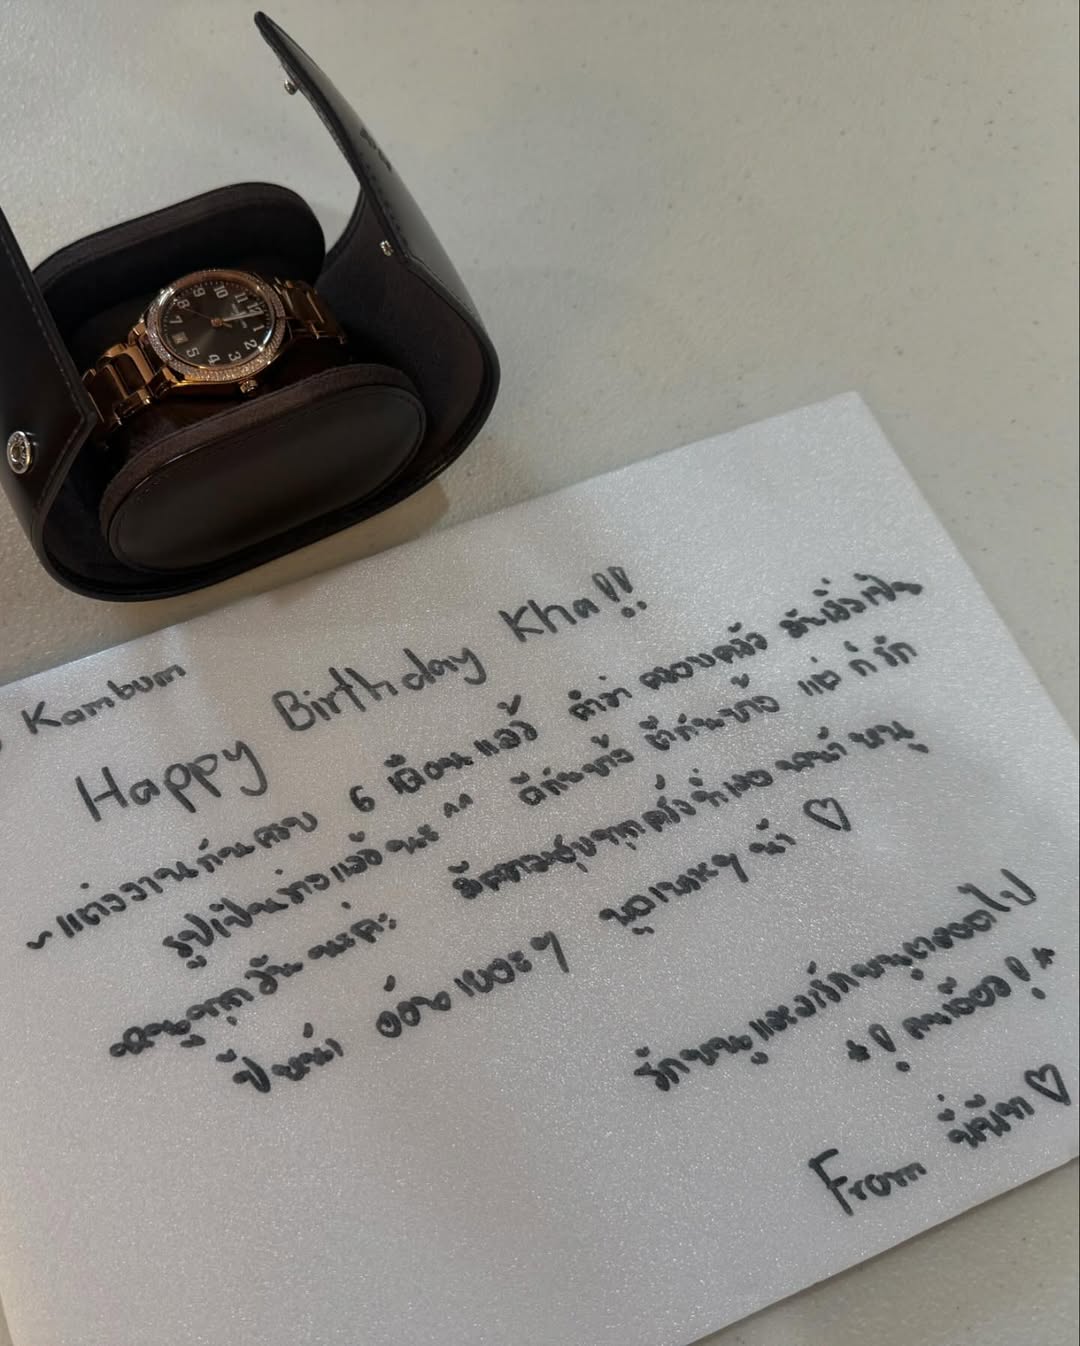 Kambum
Happy Birthday Kha!!
~ แต่งงานกันครบ 6 เดือนแล้ว คำว่า ครอบครัว มันเริ่มเป็น
รูปเป็นร่างแล้วนะ ^^ ตีกันบ้าง บ้าง แต่ ก็รัก
หนูทุกวัน นะคะ มีความสุขทุกครั้งที่
ปี้หน้า อ้อนเยอะๆ ดูแหละๆ น้า ♡
รักหนูและจะรักหนูตลอดไป
คนเดียว!
From ♡